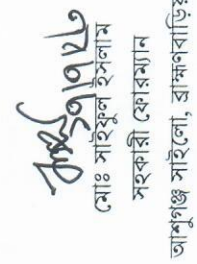 মোঃ সাইফুল ইসলাম
সহকারী ফোরম্যান
আশুগঞ্জ সাইলো, ব্রাহ্মণবাড়িয়